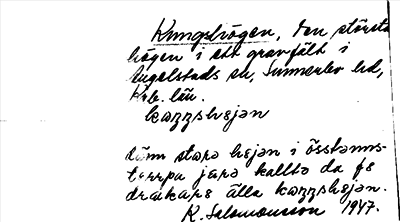 Kungshögen, den största
högen i ett gravfält i
Angelstads sn, Sunnerbo hd,
Krb. län.
kazzshejan
dänn stara hejan i össtanns-
torpa jära kallta da få
drakars älla kazzshejan.
K. Salomonsson 1947.